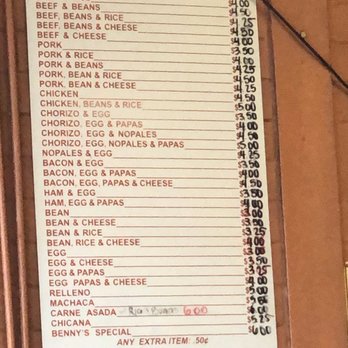 BEEF & BEANS
BEEF, BEANS & RICE $4.50
BEEF, BEANS & CHEESE $4.25
BEEF & CHEESE $4.50
PORK $4.00
PORK & RICE $3.50
PORK & BEANS $4.00
PORK, BEAN & RICE $4.50
PORK, BEAN & CHEESE $4.25
CHICKEN $4.50
CHICKEN, BEANS & RICE $5.00
CHORIZO & EGG $3.50
CHORIZO, EGG & PAPAS $4.00
CHORIZO, EGG & NOPALES $4.50
CHORIZO, EGG, NOPALES & PAPAS $5.00
NOPALES & EGG $4.25
BACON & EGG $3.50
BACON, EGG & PAPAS $4.00
BACON, EGG, PAPAS & CHEESE $4.50
HAM & EGG $3.50
HAM, EGG & PAPAS $4.00
BEAN $3.00
BEAN & CHEESE $3.50
BEAN & RICE $3.25
BEAN, RICE & CHEESE $4.00
EGG $3.00
EGG & CHEESE $3.50
EGG & PAPAS $3.75
EGG PAPAS & CHEESE $4.00
RELLENO
MACHACA
CARNE ASADA 6.00
CHICANA $5.25
BENNY'S SPECIAL $6.00
ANY EXTRA ITEM: .50¢